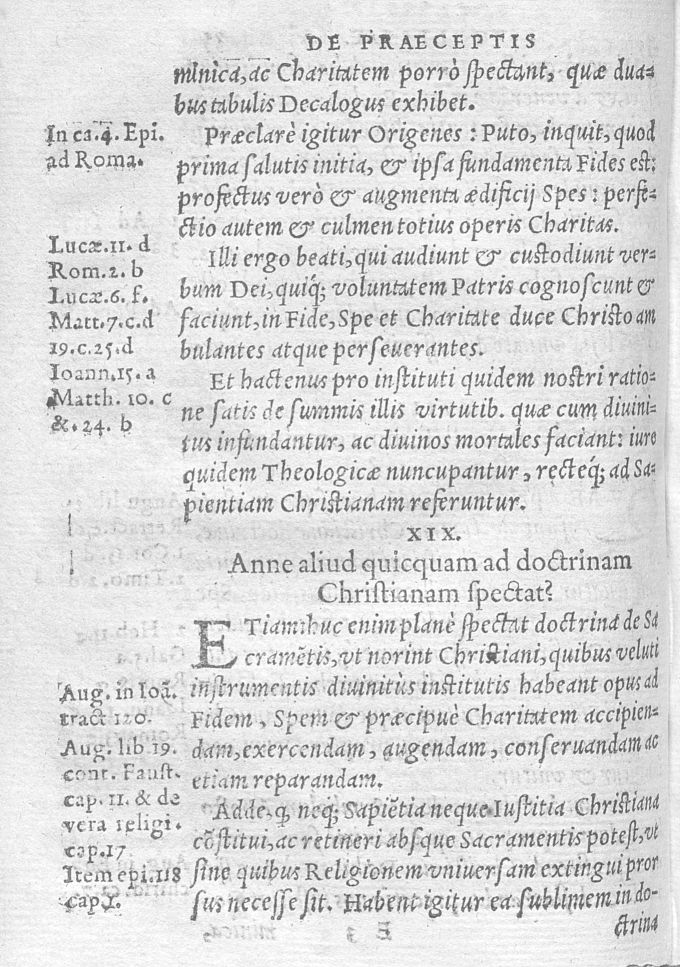 DE PRAECEPTIS
minica, ac Charitatem porrò spectant, quæ dua=
bus tabulis Decalogus exhibet.
In ca.4. Epi.
ad Roma.
Præclarè igitur Origenes : Puto, inquit, quod
prima salutis initia, & ipsa fundamenta Fides est:
profectus verò & augmenta ædificij Spes : perfe=
ctio autem & culmen totius operis Charitas.
Lucæ.11. d
Rom.2. b
Lucæ.6. f.
Matt.7.c.d
19.c.25.d
Ioann.15. a
Matth. 10. c
&. 24. b
Illi ergo beati, qui audiunt & custodiunt ver=
bum Dei, quiq; voluntatem Patris cognoscunt &
faciunt, in Fide, Spe et Charitate duce Christo am
bulantes atque perseuerantes.
Et hactenus pro instituti quidem nostri ratio=
ne satis de summis illis virtutib. quæ cum diuini=
tus infundantur, ac diuinos mortales faciant: iure
quidem Theologicæ nuncupantur, recteq; ad Sa=
pientiam Christianam referuntur.
XIX.
Anne aliud quicquam ad doctrinam
Christianam spectat?
ETiam huc enim planè spectat doctrina de Sa
cramētis, vt norint Christiani, quibus veluti
instrumentis diuinitùs institutis habeant opus ad
Fidem, Spem & præcipuè Charitatem accipien=
dam, exercendam, augendam, conseruandam ac
etiam reparandam.
Aug. in Ioā.
tract 120.
Aug. lib 19.
cont. Faust.
cap. 11. & de
vera religi.
cap.17.
Item epi.118
cap.1.
Adde, q, neq; Sapiētia neque Iustitia Christiana
cōstitui, ac retineri absque Sacramentis potest, vt
sine quibus Religionem vniuersam extingui pror
sus necesse sit. Habent igitur ea sublimem in do-
ctrina